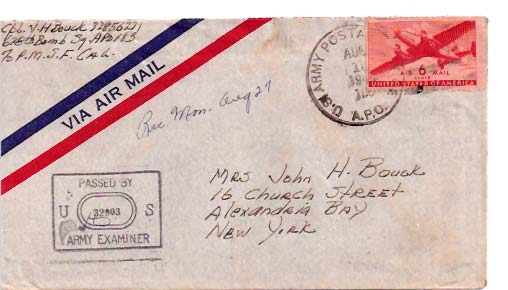 Cpl. V-H Bouck 32856231
678th Bomb Sq. APO 183
% P.M. S.F. Cal.
VIA AIR MAIL
Rec. Mon. Aug 27
U.S. ARMY POSTAL
AUG
A.P.O.
AIR 6 MAIL
CENTS
UNITED STATES OF AMERICA
PASSED BY
U 32903 S
ARMY EXAMINER
Mrs John H. Bouck
16 Church Street
Alexandria Bay
New York